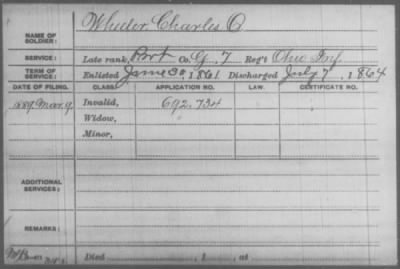 NAME OF SOLDIER: Wheeler, Charles O.
SERVICE: Late rank, Pvt Co. G, 7 Reg't Ohio Inf.
TERM OF SERVICE: Enlisted June 20, 1861. Discharged July 7, 1864
DATE OF FILING. CLASS. APPLICATION NO. LAW. CERTIFICATE NO.
1889, Mar. 9. Invalid, 692,734
Widow,
Minor,
ADDITIONAL SERVICES:
REMARKS:
Died , 1 , at